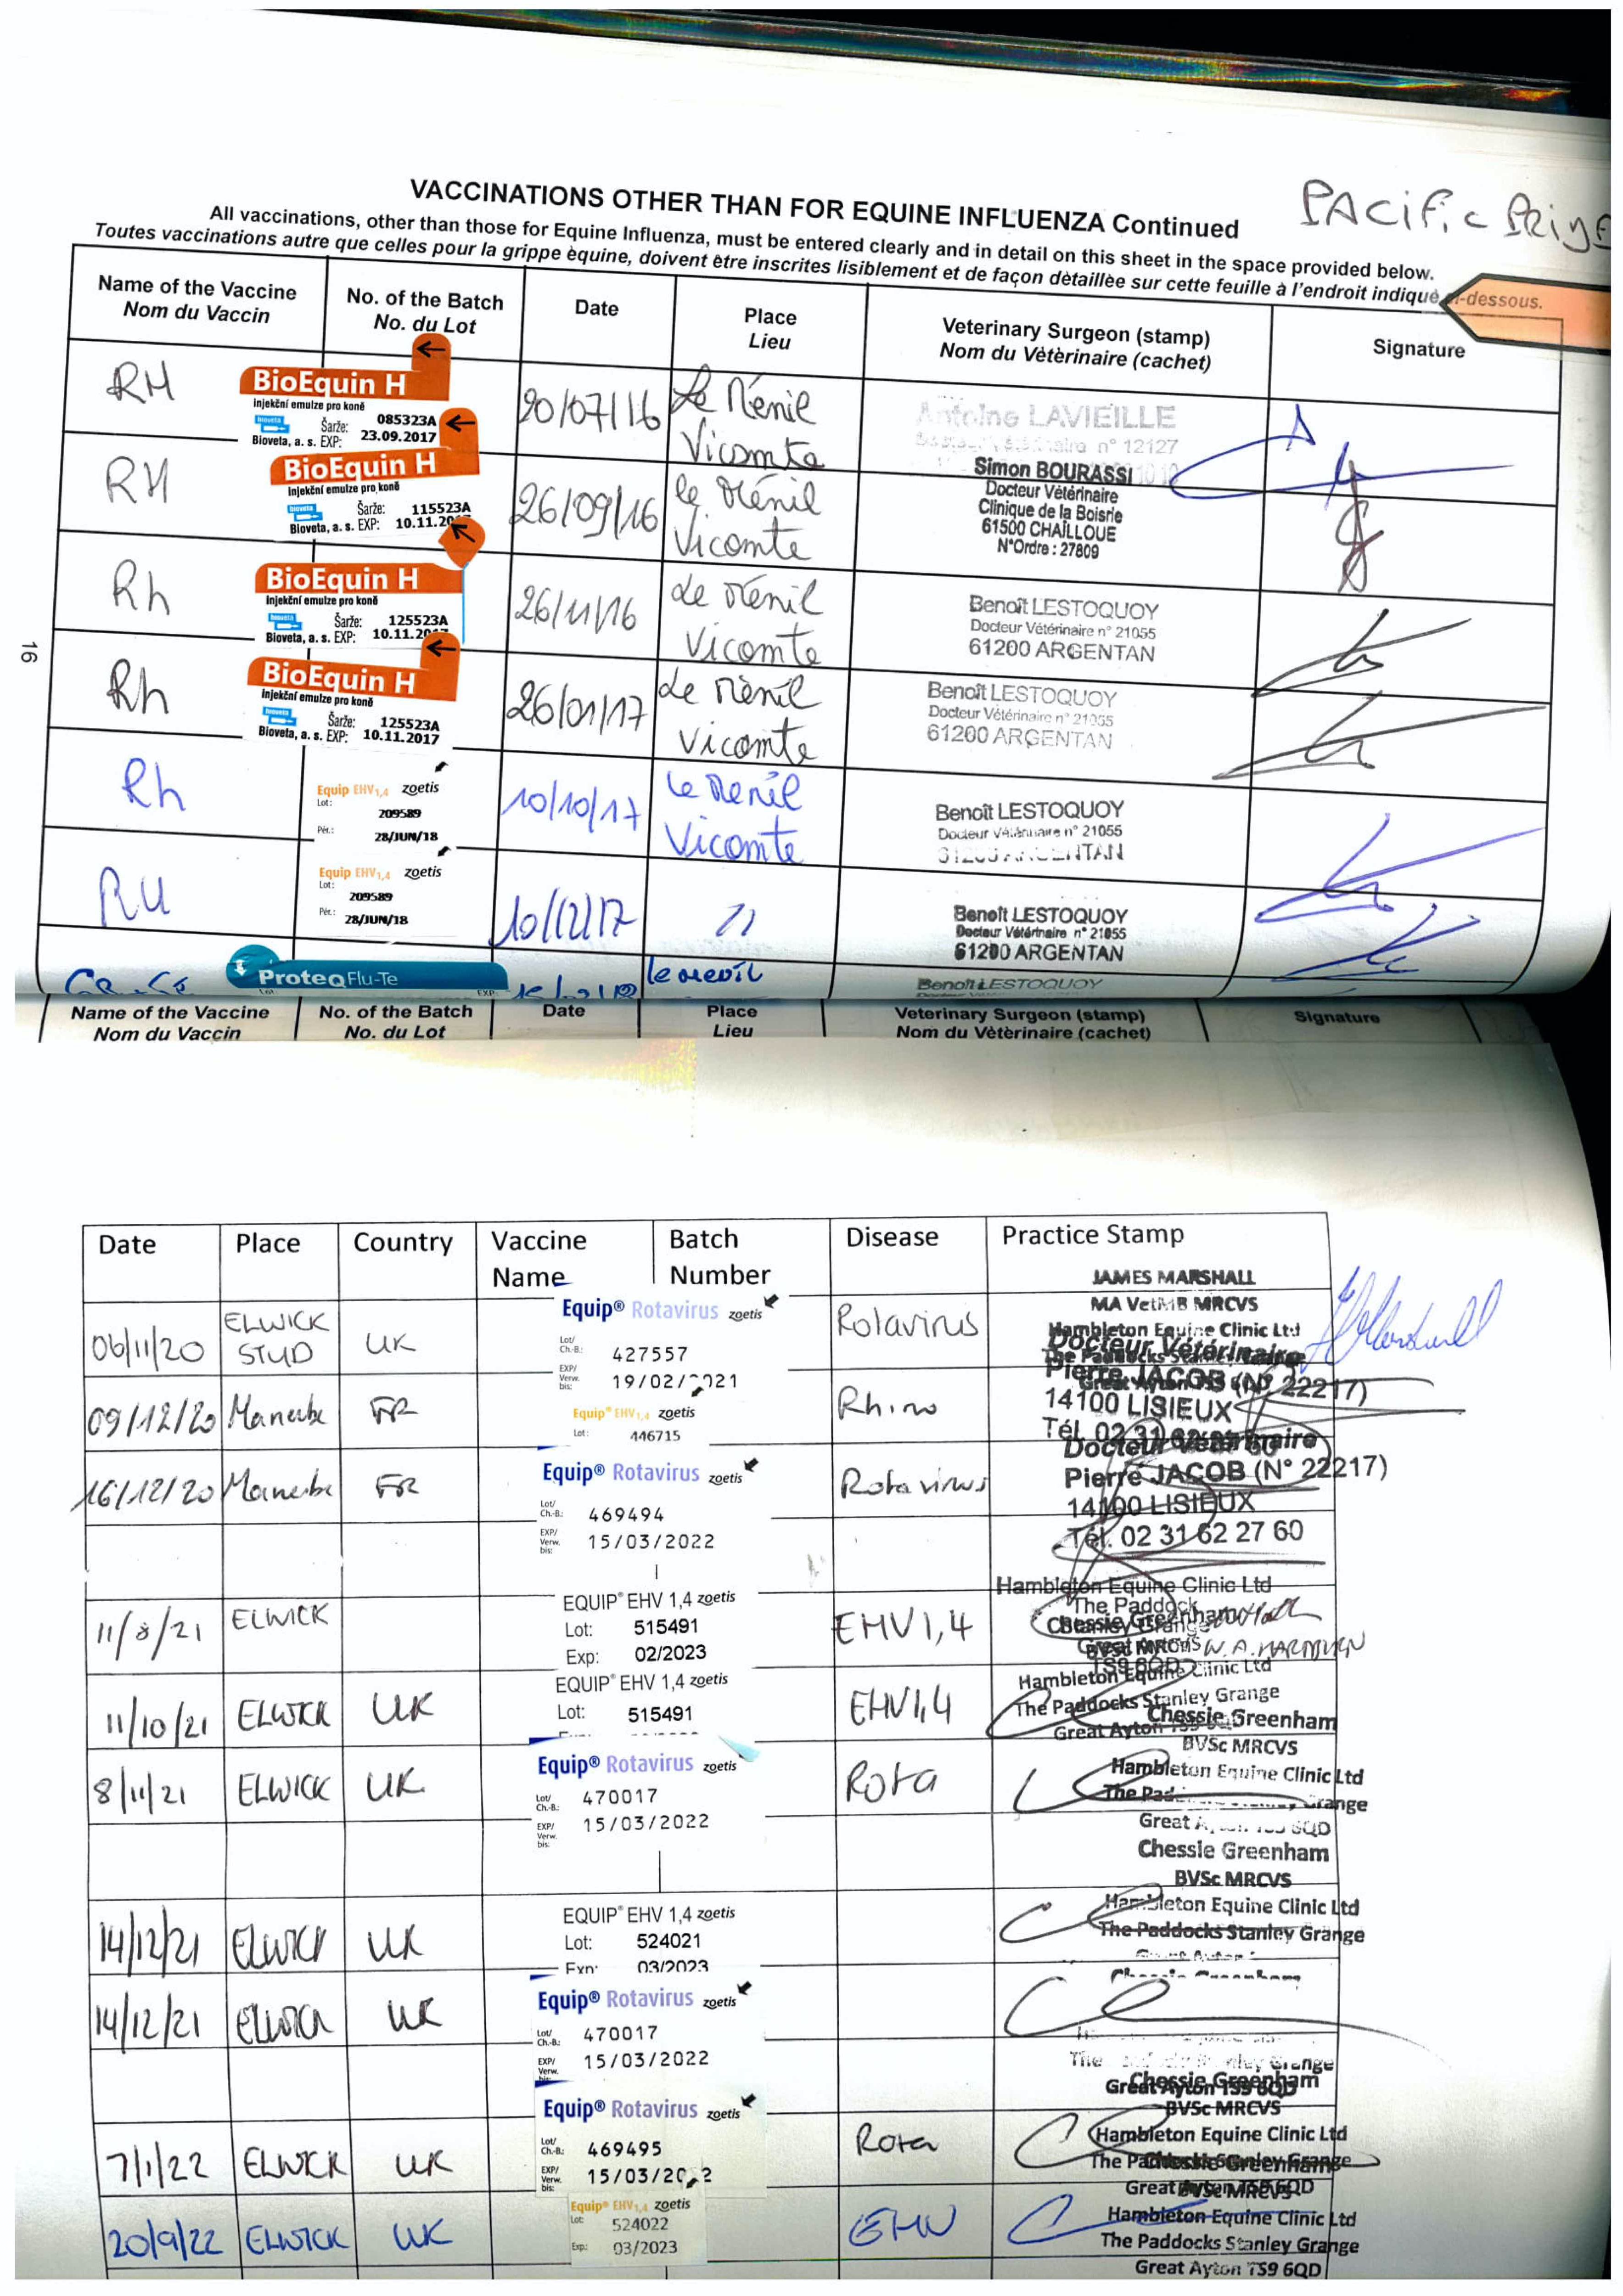 PACific
VACCINATIONS OTHER THAN FOR EQUINE INFLUENZA Continued
All vaccinations, other than those for Equine Influenza, must be entered clearly and in detail on this sheet in the space provided below.
Toutes vaccinations autre que celles pour la grippe èquine, doivent être inscrites lisiblement et de façon dètaillèe sur cette feuille à l'endroit indiquè -dessous.
Name of the Vaccine No. of the Batch Date Place Veterinary Surgeon (stamp) Signature
Nom du Vaccin No. du Lot Lieu Nom du Vètèrinaire (cachet)
RH BioEquin H 20/07/16 Le Ménil Vicomte Antoine LAVIEILLE
injekční emulze pro koně n° 12127
Bioveta Šarže: 085323A
Bioveta, a. s. EXP: 23.09.2017
RH BioEquin H 26/09/16 le Ménil Vicomte Simon BOURASSI
injekční emulze pro koně Docteur Vétérinaire
Bioveta Šarže: 115523A Clinique de la Boisrie
Bioveta, a. s. EXP: 10.11.20 61500 CHAILLOUE
N°Ordre : 27809
Rh BioEquin H 26/11/16 Le Ménil Vicomte Benoît LESTOQUOY
injekční emulze pro koně Docteur Vétérinaire n° 21055
Šarže: 125523A 61200 ARGENTAN
Bioveta, a. s. EXP: 10.11.2017
16
Rh BioEquin H 26/01/17 Le Ménil Vicomte Benoît LESTOQUOY
injekční emulze pro koně Docteur Vétérinaire n° 21055
Šarže: 125523A 61200 ARGENTAN
Bioveta, a. s. EXP: 10.11.2017
Rh Equip EHV1,4 zoetis 10/10/17 Le Menil Vicomte Benoît LESTOQUOY
Lot: 209589 Docteur Vétérinaire n° 21055
Pér.: 28/JUN/18
RH Equip EHV1,4 zoetis 10/12/17 11 Benoît LESTOQUOY
Lot: 209589 Docteur Vétérinaire n° 21055
Pér.: 28/JUN/18 61200 ARGENTAN
ProteqFlu-Te le menil Benoît LESTOQUOY
Name of the Vaccine No. of the Batch Date Place Veterinary Surgeon (stamp) Signature
Nom du Vaccin No. du Lot Lieu Nom du Vètèrinaire (cachet)
Date Place Country Vaccine Name Batch Number Disease Practice Stamp
JAMES MARSHALL
MA VetMB MRCVS
Hambleton Equine Clinic Ltd
06/11/20 ELWICK STUD UK Equip® Rotavirus zoetis Rotavirus
Lot/ Ch.-B.: 427557
EXP/ Verw. bis: 19/02/2021
Docteur Vétérinaire
Pierre JACOB (N° 22217)
14100 LISIEUX
09/12/20 Manerbe FR Equip® EHV1,4 zoetis Rhino
Lot: 446715
Docteur Vétérinaire
16/12/20 Manerbe FR Equip® Rotavirus zoetis Rotavirus Pierre JACOB (N° 22217)
Lot/ Ch.-B.: 469494 14100 LISIEUX
EXP/ Verw. bis: 15/03/2022 Tél. 02 31 62 27 60
11/8/21 ELWICK EQUIP® EHV 1,4 zoetis EHV1,4 Hambleton Equine Clinic Ltd
Lot: 515491 Chessie Greenham
Exp: 02/2023 BVSc MRCVS
11/10/21 ELWICK UK EQUIP® EHV 1,4 zoetis EHV1,4 Hambleton Equine Clinic Ltd
Lot: 515491 The Paddocks Stanley Grange
Great Ayton
Chessie Greenham
BVSc MRCVS
8/11/21 ELWICK UK Equip® Rotavirus zoetis Rota Hambleton Equine Clinic Ltd
Lot/ Ch.-B.: 470017
EXP/ Verw. bis: 15/03/2022 Great
Chessie Greenham
BVSc MRCVS
14/12/21 ELWICK UK EQUIP® EHV 1,4 zoetis Hambleton Equine Clinic Ltd
Lot: 524021 The Paddocks Stanley Grange
Exp: 03/2023
14/12/21 ELWICK UK Equip® Rotavirus zoetis
Lot/ Ch.-B.: 470017
EXP/ Verw. bis: 15/03/2022
Great Ayton TS9 6QD
Chessie Greenham
BVSc MRCVS
7/1/22 ELWICK UK Equip® Rotavirus zoetis Rota Hambleton Equine Clinic Ltd
Lot/ Ch.-B.: 469495
EXP/ Verw. bis: 15/03/20 2
Chessie Greenham
BVSc MRCVS
20/9/22 ELWICK UK Equip® EHV1,4 zoetis EHV Hambleton Equine Clinic Ltd
Lot: 524022 The Paddocks Stanley Grange
Exp: 03/2023 Great Ayton TS9 6QD